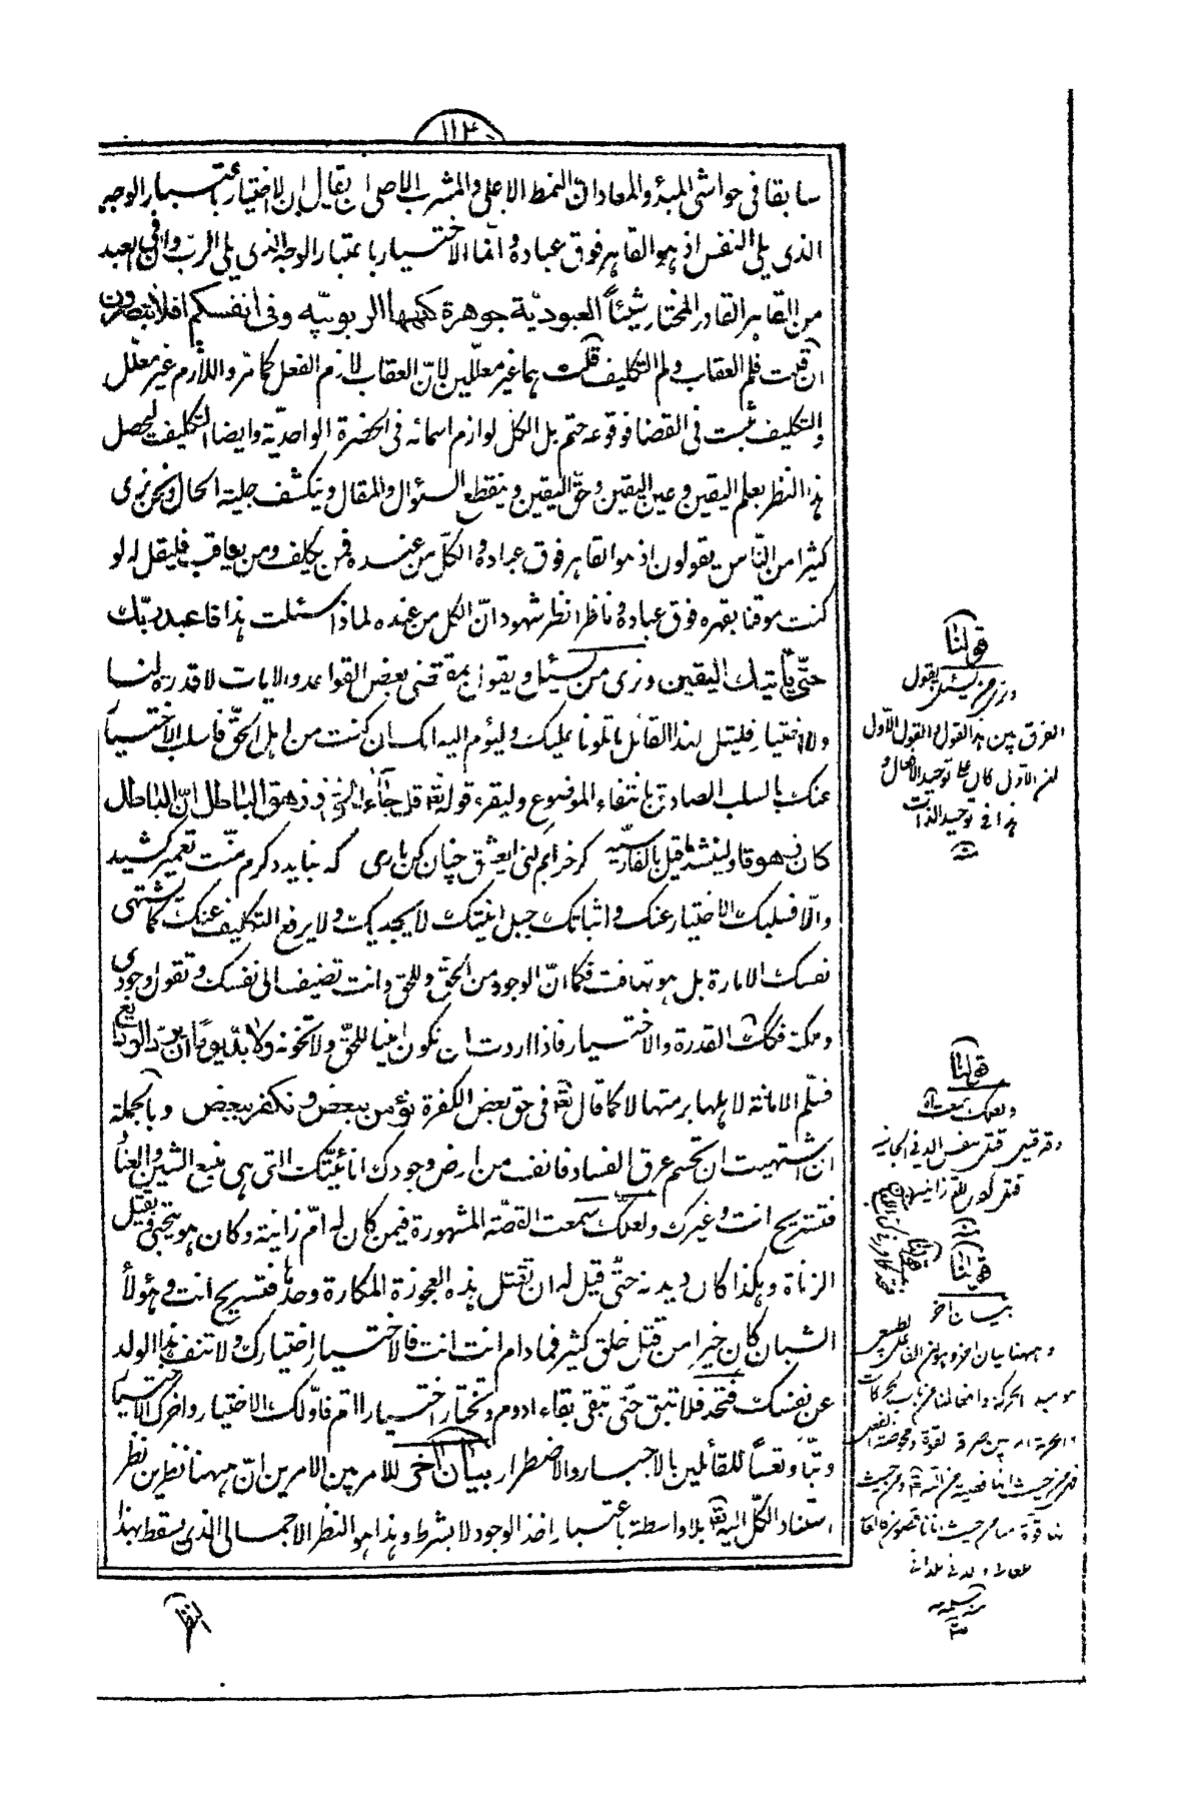 ١١٣
سابقا فى حواشى المبدء والمعاد ان النمط الاعلى والمشرب الاصل ان يقال ان لا اختيار باعتبار الوجه
الذى يلى النفس اذ هو القاهر فوق عباده وانما الاختيار باعتبار الوجه الذى يلى الرب وان فى العبد
من القاهر القادر المختار شيئاً العبوديّة جوهرة كنهها الربوبيّه وفى انفسكم افلا تبصرون
ان قلت فلم العقاب ولم التكليف قلت هما غير معلّلين لانّ العقاب لازم الفعل كما مرّ واللازم غير معلّل
والتكليف ثبت فى القضا فوقوعه حتم بل الكل لوازم اسمائه فى الحضرة الواحديّة وايضا التكليف ليحصل
هذا النظر بعلم اليقين وعين اليقين وحق اليقين وينقطع السؤال والمقال وينكشف جلية الحال ونحن نرى
كثيرا من النّاس يقولون اذ هو القاهر فوق عباده والكلّ من عنده فمن يكلف ومن يعاقب فليقل له لو
كنت موقنا بقهره فوق عباده وناظرا نظر شهود انّ الكل من عنده لماذا سئلت هذا فاعبد ربّك
حتّى يأتيك اليقين ونرى من يسئل ويقول بمقتضى بعض القواعد والايات لا قدرة لنا
ولا اختيار فليتل لهذا القائل ما تلونا عليك وليؤم اليه انك ان كنت من اهل الحقّ فاسلب الاختيار
عنك بالسلب الصادق بانتفاء الموضوع وليقرء قوله تعه قل جاء الحق وزهق الباطل انّ الباطل
كان زهوقا ولينشد ما قيل بالفارسيّه كر خرابم كنى ايعشق چنان كن بارى كه نبايد دكرم منّت تعمير كشيد
والّا فسلبك الاختيار عنك واثباتك جبل انيّتك لا يجديك ولا يرفع التكليف عنك كما يشتهى
نفسك الامارة بل هو تهافت فكما انّ الوجود من الحق وللحق وانت تضيف الى نفسك وتقول وجودى
وملكه فكك القدرة والاختيار فاذا اردت ان تكون امينا للحق ولا تخونه ولا بدّ يوماً ان يردّ الودايع
فسلّم الامانة لاهلها برمتها لا كما قال تعه فى حق بعض الكفرة نؤمن ببعض ونكفر ببعض وبالجملة
ان اشتهيت ان تحسم عرق الفساد فانف من ارض وجودك انانيّتك التى هى منبع الشين والعنا
فتستريح انت وغيرك ولعلك سمعت القصّة المشهورة فيمن كان له امّ زانية وكان هو ينحى فى قتل
الزناة وهكذا كان ديدنه حتّى قيل له ان تقتل هذه العجوزة المكارة وحدها فتستريح انت وهؤلاء
الشبان كان خيرا من قتل خلق كثير فما دام انت انت فالاختيار اختيارك ولا تنف هذا الولد
عن نفسك فتحد فلا تبق حتّى تبقى بقاء ادوم وتختار اختيارا اتم فاوّلك الاختيار واخرك الاختيار
وتبّا وتعساً للقائلين بالاجبار والاضطرار بيان اخر للامر بين الامرين انّ ههنا نظرين نظر
استناد الكلّ اليه تعه بلا واسطة باعتبار اخذ الوجود لا بشرط وهذا هو النظر الاجمالى الذى يسقط بهذا
النظر
قولنا
ونرى من يسئل ويقول
الفرق بين هذا القول والقول الاوّل
ان الاول كان على توحيد الافعال و
هذا فى توحيد الذات
منه
قولنا
ولعلك سمعت اه
قولنا
بيان اخر